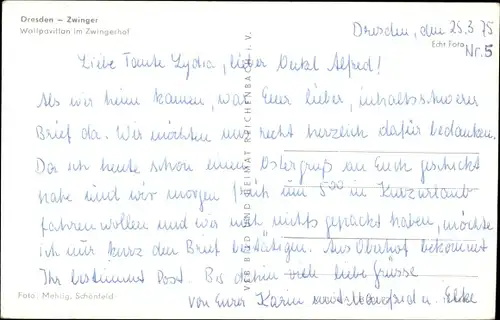 Dresden – Zwinger
Wallpavillon im Zwingerhof
Dresden, den 25.3.75
Echt Foto
Nr. 5
Liebe Tante Lydia, lieber Onkel Alfred!
Als wir heim kamen, war Euer lieber, inhaltsschwerer
Brief da. Wir möchten uns recht herzlich dafür bedanken.
Da ich heute schon einen Ostergruß an Euch geschickt
habe und wir morgen früh um 5⁰⁰ in Kurzurlaub
fahren wollen und wir noch nichts gepackt haben, möchte
ich nur kurz den Brief bestätigen. Aus Oberhof bekommt
Ihr bestimmt Post. Bis dahin viele liebe Grüsse
von Eurer Karin Manfred u. Elke
Foto: Mehlig, Schönfeld
VEB BILD UND HEIMAT REICHENBACH i. V.